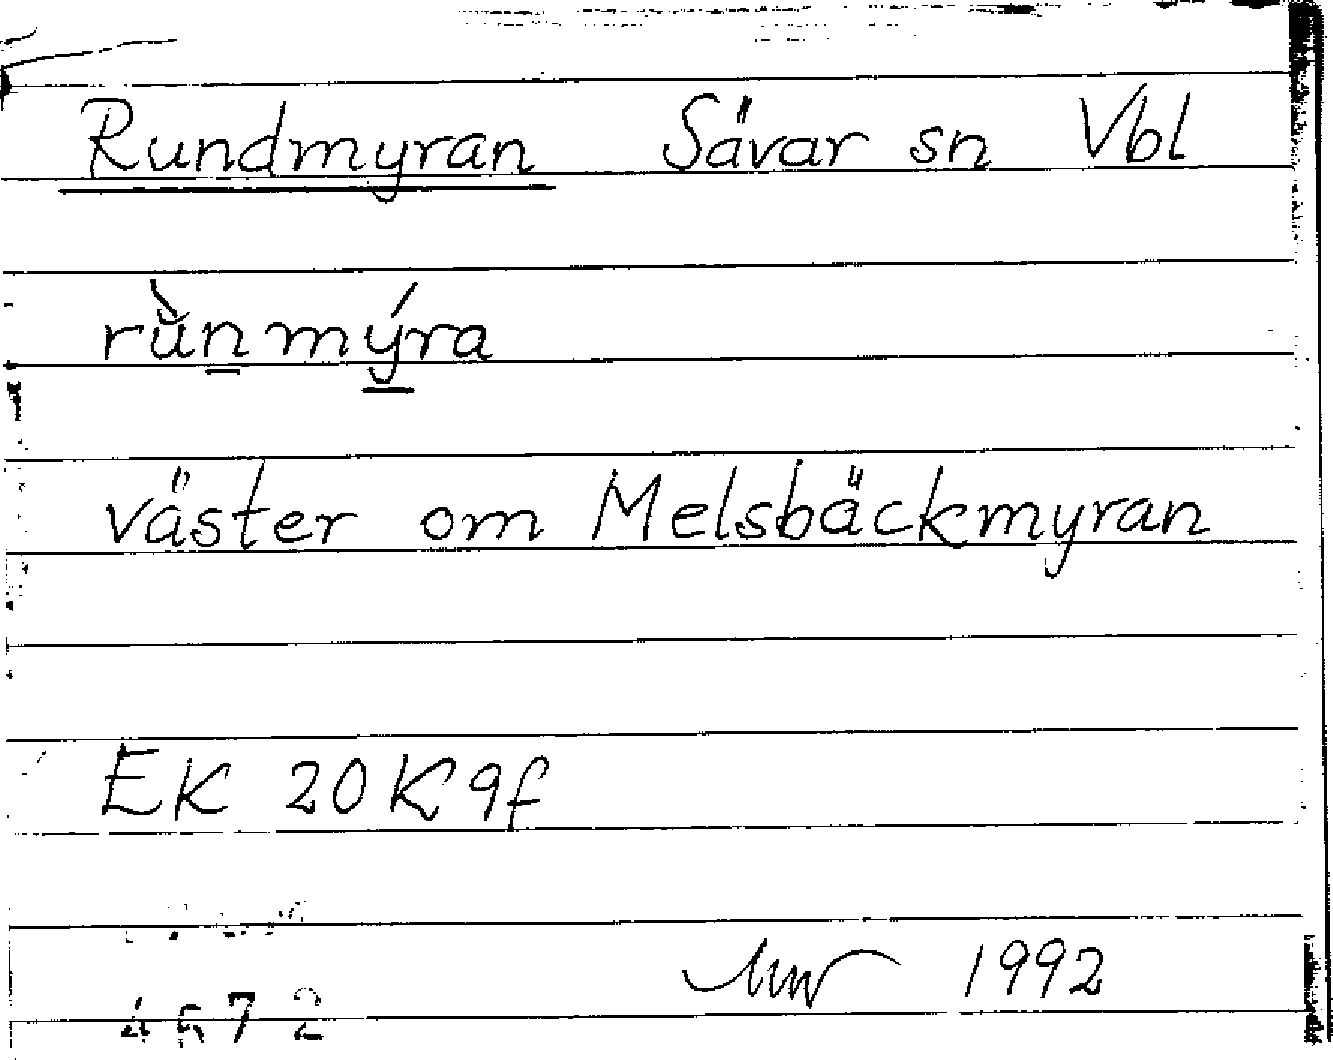 Rundmyran Sävar sn Vbl
rùn̲mý̲ra
väster om Melsbäckmyran
EK 20K9f
1992
4572